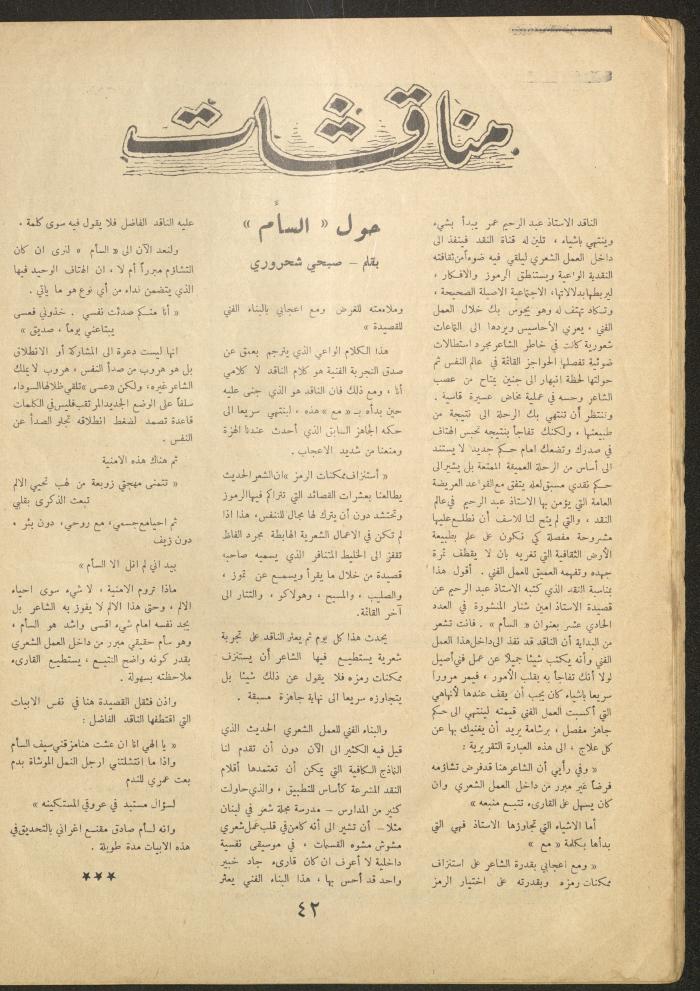 مناقشات
حول « السأم »
بقلم – صبحي شحروري
الناقد الاستاذ عبد الرحيم عمر يبدأ بشيء
وينتهي باشياء ، تلين له قناة النقد فينفذ الى
داخل العمل الشعري ليلقي فيه ضوءاً من ثقافته
النقدية الواعية ويستنطق الرموز والافكار ،
ليربطها بدلالاتها، الاجتماعية الاصيلة الصحيحة ،
وتكاد تهتف له وهو يجوس بك خلال العمل
الفني ، يعري الأحاسيس ويردها الى التماعات
شعورية كانت في خاطر الشاعر مجرد استطالات
ضوئية تفصلها الحواجز القائمة في عالم النفس ثم
حولتها لحظة انبهار الى جنين يمتاح من عصب
الشاعر وحسه في عملية مخاض عسيرة قاسية .
وتنتظر أن تنتهي بك الرحلة الى نتيجة من
طبيعتها ، ولكنك تفاجأ بنتيجه تحبس الهتاف
في صدرك وتضعك امام حكم جديد لا يستند
الى أساس من الرحلة العميقة الممتعة بل يشير الى
حكم نقدي مسبق لعله يتفق مع القواعد العريضة
العامة التي يؤمن بها الاستاذ عبد الرحيم في عالم
النقد ، والتي لم يتح لنا للاسف أن نطلع عليها
مشروحة مفصلة كي نكون على علم بطبيعة
الأرض الثقافية التي تغريه بان لا يقطف ثمرة
جهده وتفهمه العميق للعمل الفني . أقول هذا
بمناسبة النقد الذي كتبه الاستاذ عبد الرحيم عن
قصيدة الاستاذ امين شنار المنشورة في العدد
الحادي عشر بعنوان « السأم » . فانت تشعر
من البداية أن الناقد قد نفذ الى داخل هذا العمل
الفني وأنه يكتب شيئا جميلا عن عمل فني أصيل
لولا أنك تفاجأ به يقلب الأمور ، فيمر مرورا
سريعا بأشياء كان يجب أن يقف عندها لأنها هي
التي أكسبت العمل الفني قيمته لينتهي الى حكم
جاهز مفصل ، برشامة يريد أن يغنيك بها عن
كل علاج ، الى هذه العبارة التقريرية :
« وفي رأيي أن الشاعر هنا قد فرض تشاؤمه
فرضاً غير مبرر من داخل العمل الشعري وان
كان يسهل على القارىء تتبع منبعه »
أما الاشياء التي تجاوزها الاستاذ فهي التي
بدأها بكلمة « مع »
« ومع اعجابي بقدرة الشاعر على استنزاف
ممكنات رمزه وبقدرته على اختيار الرمز
وملاءمته للغرض ومع اعجابي بالبناء الفني
للقصيدة »
هذا الكلام الواعي الذي يترجم بعمق عن
صدق التجربة الفنية هو كلام الناقد لا كلامي
أنا ، ومع ذلك فان الناقد هو الذي جنى عليه
حين بدأه بـ « مع » هذه ، لينتهي سريعا الى
حكمه الجاهز السابق الذي أحدث عندنا الهزة
ومنعنا من شديد الاعجاب .
« أستنزاف ممكنات الرمز » ان الشعر الحديث
يطالعنا بعشرات القصائد التي تتراكم فيها الرموز
وتحتشد دون أن يترك لها مجال للتنفس، هذا اذا
لم تكن في الاعمال الشعرية الهابطة مجرد الفاظ
تقفز الى الخليط المتنافر الذي يسميه صاحبه
قصيدة من خلال ما يقرأ ويسمع عن تموز ،
والصليب ، والمسيح ، وهولاكو ، والتتار الى
آخر القائمة.
يحدث هذا كل يوم ثم يعثر الناقد على تجربة
شعرية يستطيع فيها الشاعر أن يستنزف
ممكنات رمزه فلا يقول عن ذلك شيئا بل
يتجاوزه سريعا الى نهاية جاهزة مسبقة .
والبناء الفني للعمل الشعري الحديث الذي
قيل فيه الكثير الى الآن دون أن تقدم لنا
النماذج الكافية التي يمكن أن تعتمدها أقلام
النقد المتسرعة كأساس للتطبيق ، والذي حاولت
كثير من المدارس – مدرسة مجلة شعر في لبنان
مثلا – أن تشير الى أنه كامن في قلب عمل شعري
مشوش مشوه القسمات ، في موسيقى نفسية
داخلية لا أعرف ان كان قارىء جاد خبير
واحد قد أحس بها ، هذا البناء الفني يعثر
عليه الناقد الفاضل فلا يقول فيه سوى كلمة .
ولنعد الآن الى « السأم » لنرى ان كان
التشاؤم مبرراً أم لا ، ان الهتاف الوحيد فيها
الذي يتضمن نداء من أي نوع هو ما يأتي .
« أنا منكم صدئت نفسي . خذوني فعسى
يبتاعني يوماً ، صديق »
انها ليست دعوة الى المشاركة أو الانطلاق
بل هو هرب من صدأ النفس ، هروب لا يملك
الشاعر غيره، ولكن «عسى» تلقي ظلالها السوداء
سلفاً على الوضع الجديد المرتقب فليس في الكلمات
قاعدة تصمد لضغط انطلاقه تجلو الصدأ عن
النفس .
ثم هناك هذه الامنية
« تتمنى مهجتي زوبعة من لهب تحيي الالم
تبعث الذكرى بقلبي
ثم احيا مع جسمي، مع روحي، دون يئر .
دون زيف
بيد اني لم اقل الا السأم »
ماذا تروم الامنية ، لا شيء سوى احياء
الالم ، وحتى هذا الالم لا يفوز به الشاعر بل
يجد نفسه امام شيء اقسى واشد هو السأم ،
وهو سأم حقيقي مبرر من داخل العمل الشعري
بقدر كونه واضح النتبع ، يستطيع القارىء
ملاحظته بسهولة .
واذن فثقل القصيدة هنا في نفس الابيات
التي اقتطفها الناقد الفاضل :
« يا الهي انا ان عشت هنا مزقني سيف السأم
واذا ما انتشلتني ارجل النمل الموشاة بدم
بعت عمري للندم
لسؤال مستبد في عروقي المستكينه »
وانه لسأم صادق مقنع اغراني بالتحديق في
هذه الابيات مدة طويلة .
★★★
٤٢